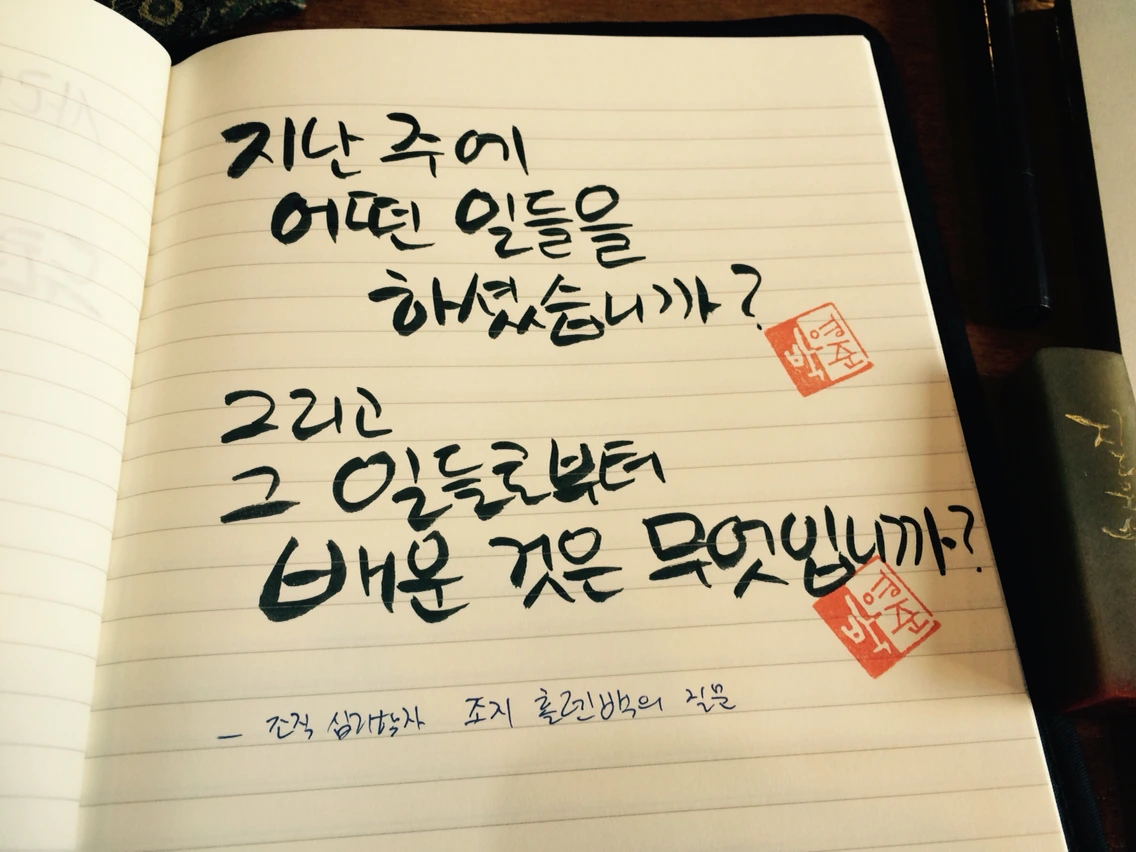 지난 주에
어떤 일들을
하셨습니까?
그리고
그 일들로부터
배운 것은 무엇입니까?
– 조직 심리학자 조지 홀렌벡의 질문